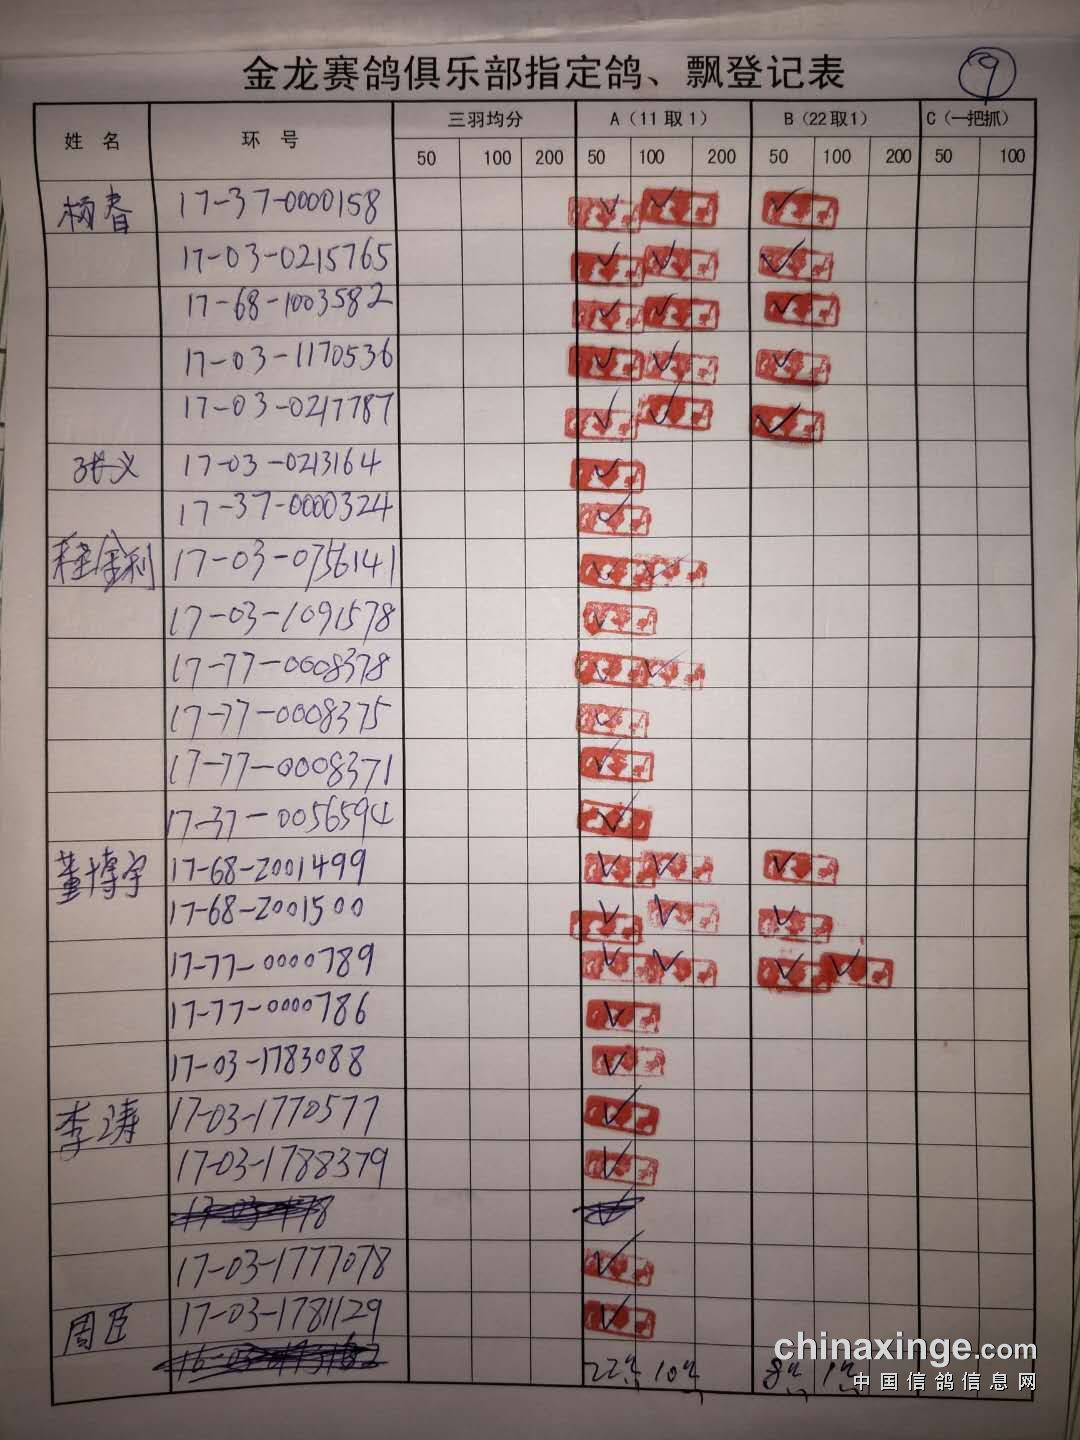 金龙赛鸽俱乐部指定鸽、飘登记表 ⑨
姓 名 环 号 三羽均分 A（11取1） B（22取1） C（一把抓）
50 100 200 50 100 200 50 100 200 50 100
杨春 17-37-0000158 ✓ ✓ ✓
17-03-0215765 ✓ ✓ ✓
17-68-1003582 ✓ ✓ ✓
17-03-1170536 ✓ ✓ ✓
17-03-0217787 ✓ ✓ ✓
张义 17-03-0213164 ✓
17-37-0000324 ✓
程金利 17-03-0756141 ✓ ✓
17-03-1091578 ✓
17-77-0008378 ✓ ✓
17-77-0008375 ✓
17-77-0008371 ✓
17-37-0056594 ✓
董博宇 17-68-2001499 ✓ ✓ ✓
17-68-2001500 ✓ ✓ ✓
17-77-0000789 ✓ ✓ ✓ ✓
17-77-0000786 ✓
17-03-1783088 ✓
李涛 17-03-1770577 ✓
17-03-1788379 ✓
17-03-178 ✓
17-03-1777078 ✓
周臣 17-03-1781129 ✓
22 10 8 1
chinaxinge.com
中国信鸽信息网